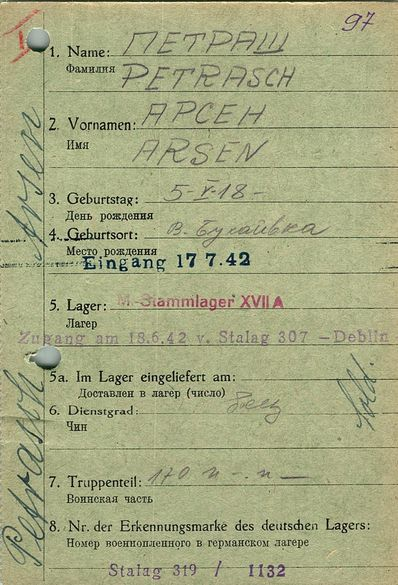 97
1. Name: ПЕТРАШ
Фамилия PETRASCH
2. Vornamen: АРСЕН
Имя ARSEN
3. Geburtstag: 5-V-18-
День рождения
4. Geburtsort: В.
Место рождения
Eingang 17 7.42
5. Lager: M.-Stammlager XVII A
Лагер
Zugang am 18.6.42 v. Stalag 307 - Deblin -
5a. Im Lager eingeliefert am:
Доставлен в лагер (число)
6. Dienstgrad:
Чин
Sold.
7. Truppenteil: 170 п -. п —
Воинская часть
8. Nr. der Erkennungsmarke des deutschen Lagers:
Номер военнопленного в германском лагере
Stalag 319 / 1132
Petrasch Arsen